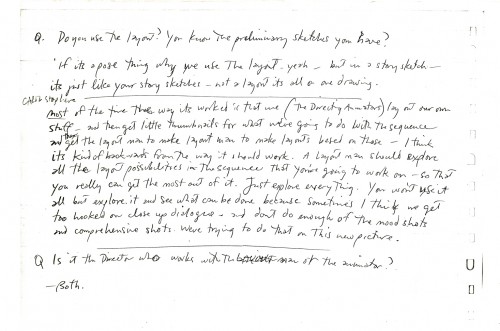 Q. Do you use the layout? You know the preliminary sketches you have?
"If its a pose thing why we use the layout, yeah - but in a story sketch -
its just like your story sketches - not a layout its all one drawing.
most of the time the way its worked is that we (The Directing Animators) lay out our own
stuff - and then get little thumbnails for what we're going to do with the sequence
and get the layout man to make layout man to make layouts based on those - I think
its kind of backwards from the way it should work. A layout man should explore
all the layout possibilities in the sequence that you're going to work on - so that
you really can get the most out of it. Just explore everything. You won't use it
all but explore it and see what can be done because sometimes I think we get
too hooked on close up dialogue - and don't do enough of the mood shots
and comprehensive shots. We're trying to do that on this new picture.
Q Is it the Director who works with the layout man or the animator?
- Both.